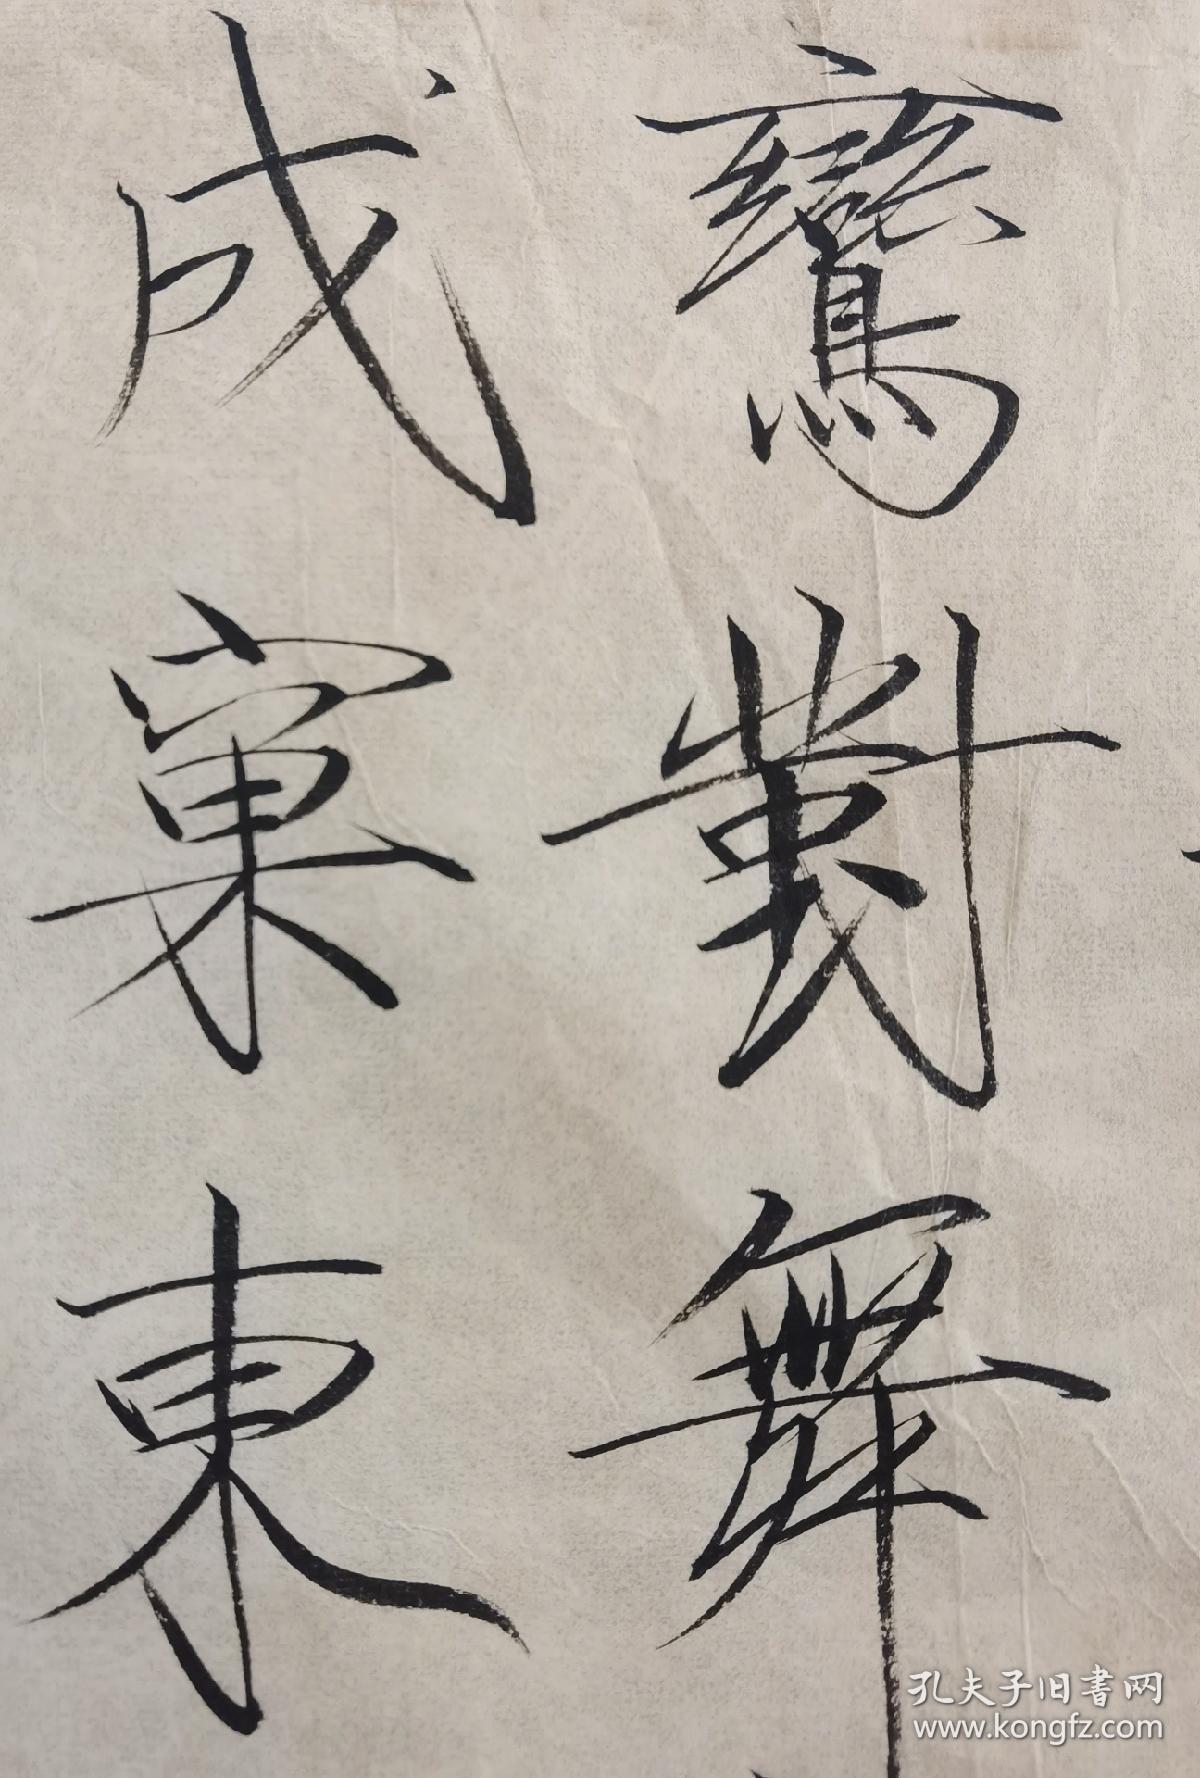 鸞對舞
成窠東
孔夫子旧書网
www.kongfz.com